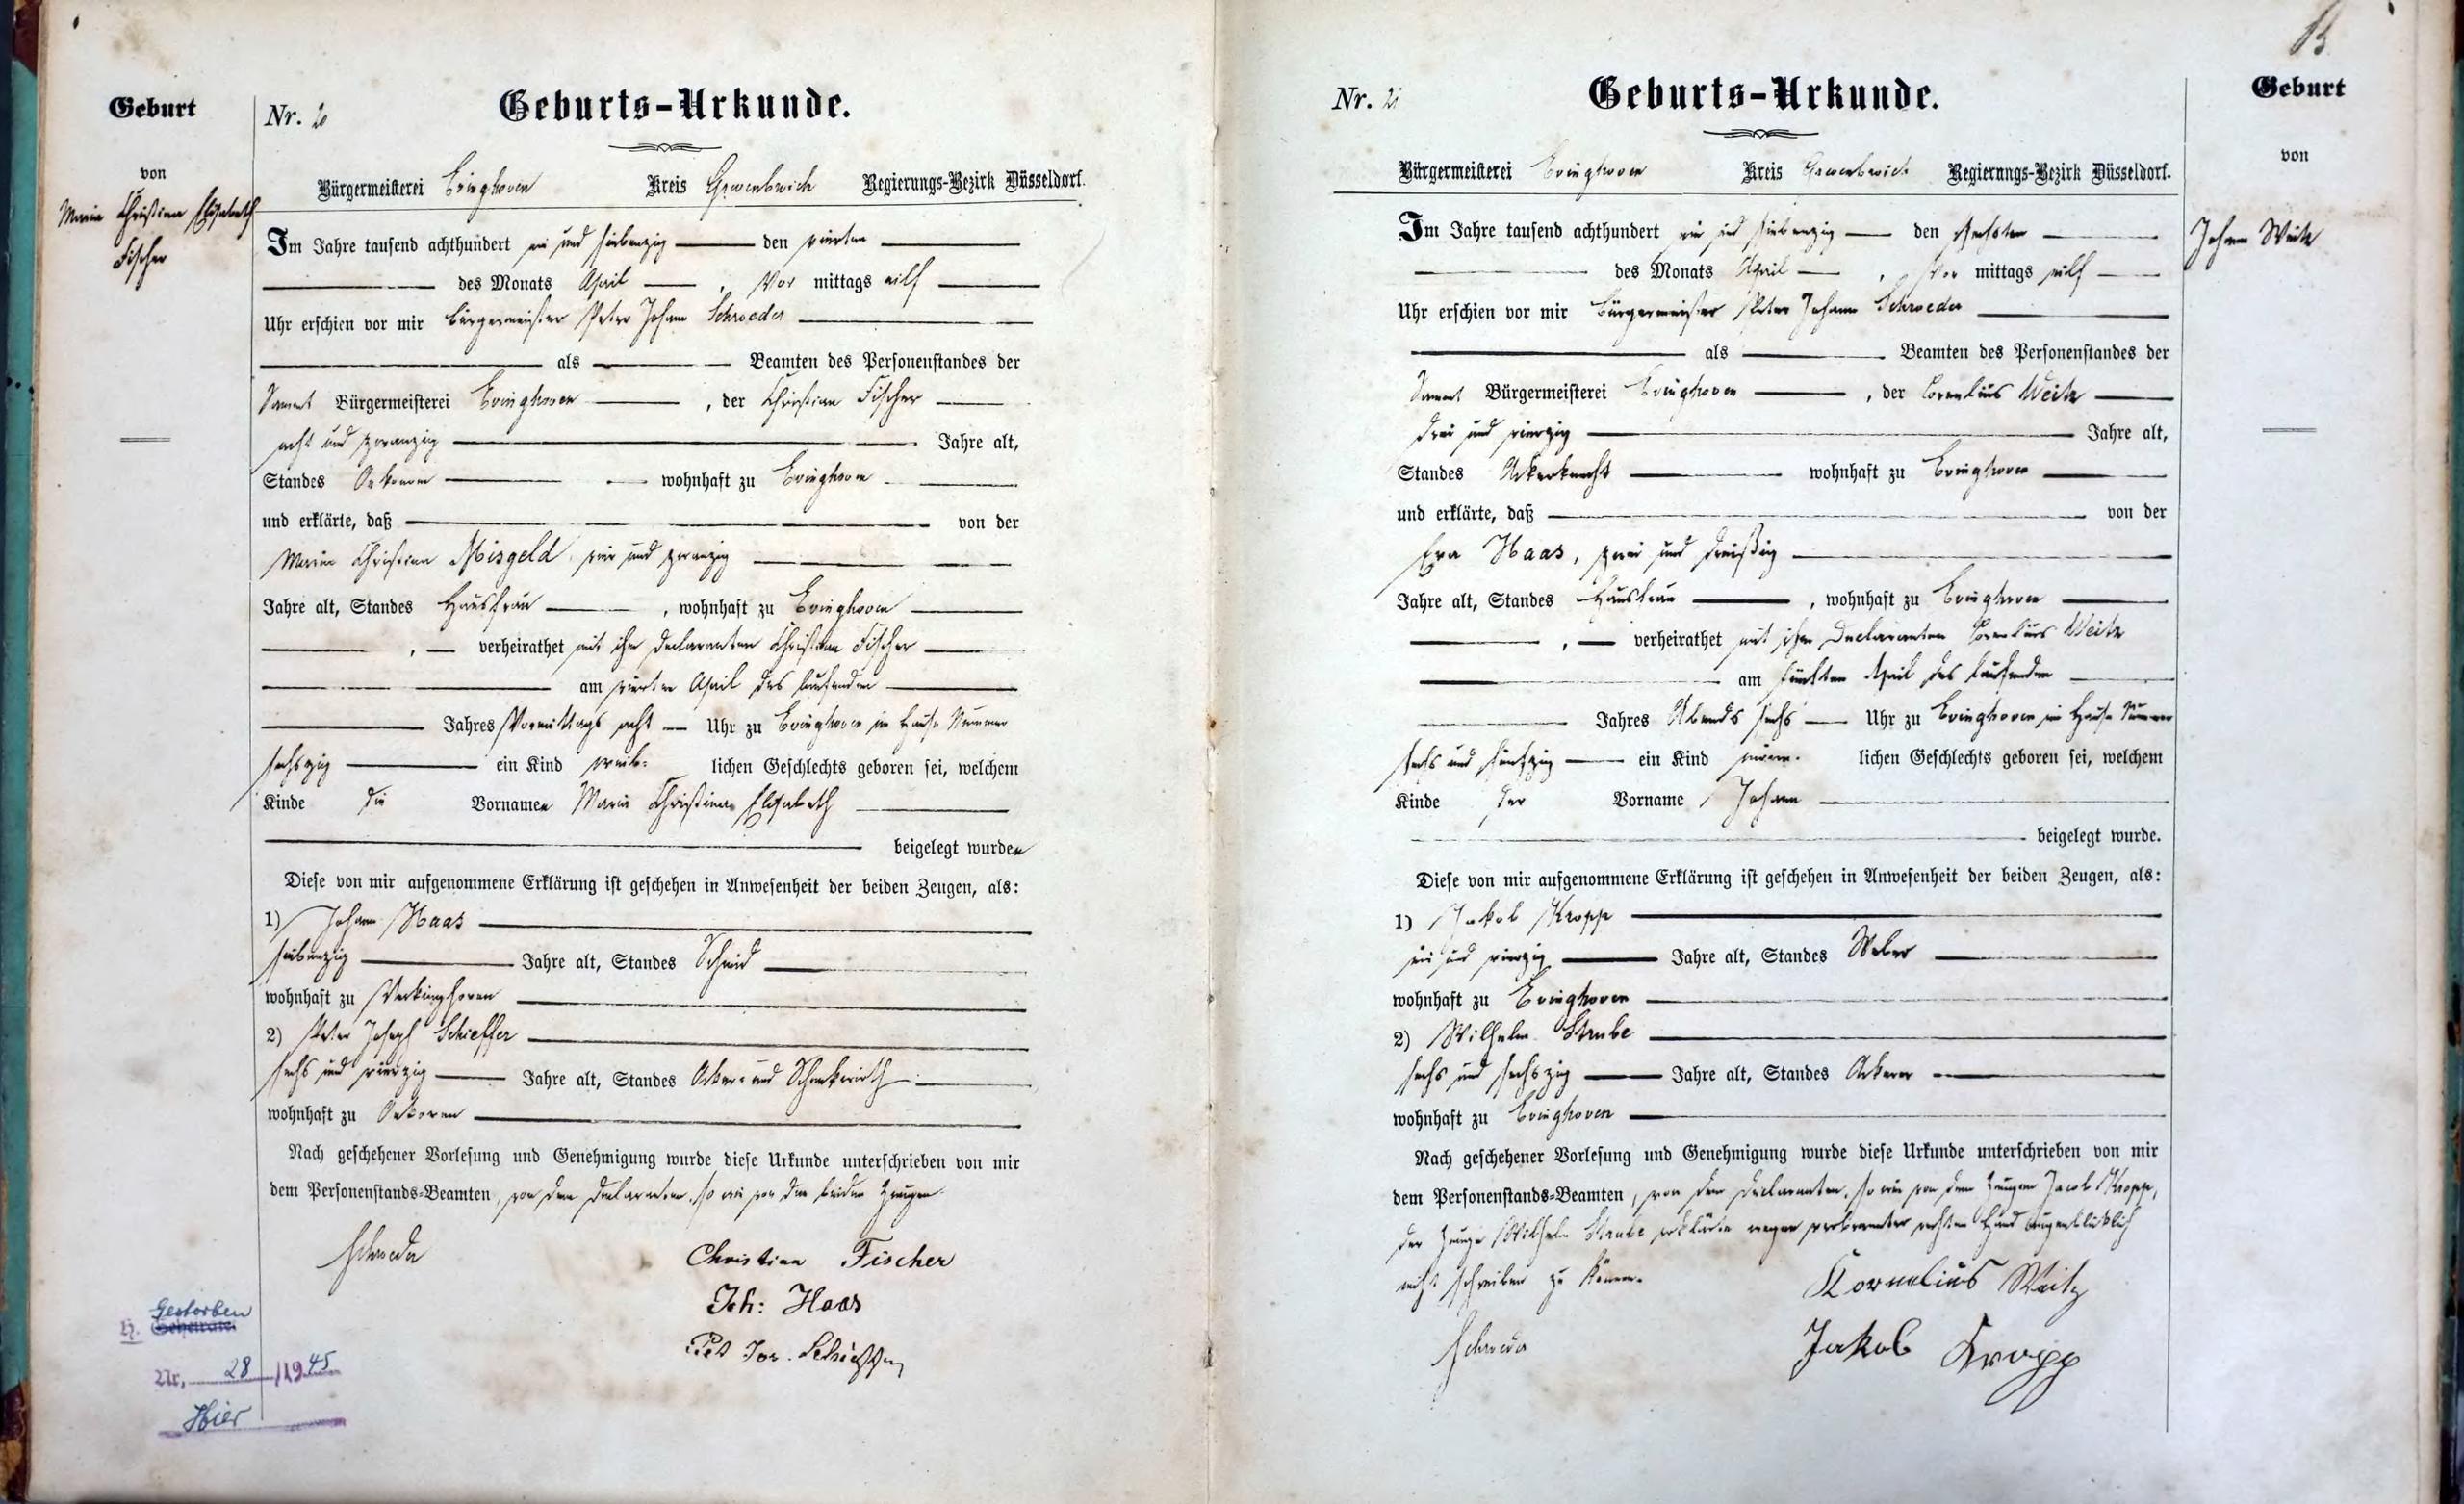 Geburt
von
Maria Christina Elisabeth
Fischer
Nr. 20
Geburts-Urkunde.
Bürgermeisterei Evinghoven Kreis Grevenbroich Regierungs-Bezirk Düsseldorf.
Im Jahre tausend achthundert ein und siebenzig den vierten
des Monats April , Vor mittags eilf
Uhr erschien vor mir Bürgermeister Peter Johann Schroeder
als Beamten des Personenstandes der
Sammt Bürgermeisterei Evinghoven , der Christian Fischer
acht und zwanzig Jahre alt,
Standes Oekonom wohnhaft zu Evinghoven
und erklärte, daß von der
Maria Christina Misgeld, vier und zwanzig
Jahre alt, Standes Hausfrau , wohnhaft zu Evinghoven
, verheirathet mit ihm Declaranten Christian Fischer
am vierten April des laufenden
Jahres Vormittags acht Uhr zu Evinghoven im Hause Nummer
sechszig ein Kind weib- lichen Geschlechts geboren sei, welchem
Kinde die Vornamen Maria Christina Elisabeth
beigelegt wurden
Diese von mir aufgenommene Erklärung ist geschehen in Anwesenheit der beiden Zeugen, als:
1) Johann Haas
siebenzig Jahre alt, Standes Schmid
wohnhaft zu
2) Peter Joseph Schieffer
sechs und vierzig Jahre alt, Standes Ackerer und Schenkwirth
wohnhaft zu Oekoven
Nach geschehener Vorlesung und Genehmigung wurde diese Urkunde unterschrieben von mir
dem Personenstands-Beamten, von dem Declaranten, so wie von den beiden Zeugen
Schroeder
Christian Fischer
Joh: Haas
Pet Jos. Schieffer
Gestorben
H. Geheiratet
Nr. 28 /1945
Hier
13
Geburt
von
Johann Weitz
Nr. 21
Geburts-Urkunde.
Bürgermeisterei Evinghoven Kreis Grevenbroich Regierungs-Bezirk Düsseldorf.
Im Jahre tausend achthundert ein und siebenzig den sechsten
des Monats April , Vor mittags eilf
Uhr erschien vor mir Bürgermeister Peter Johann Schroeder
als Beamten des Personenstandes der
Sammt Bürgermeisterei Evinghoven , der Cornelius Weitz
drei und vierzig Jahre alt,
Standes Ackerknecht wohnhaft zu Evinghoven
und erklärte, daß von der
Eva Haas, zwei und dreißig
Jahre alt, Standes Hausfrau , wohnhaft zu Evinghoven
, verheirathet mit ihm Declaranten Cornelius Weitz
am fünften April des laufenden
Jahres Abends sechs Uhr zu Evinghoven im Hause Nummer
sechs und fünfzig ein Kind männ- lichen Geschlechts geboren sei, welchem
Kinde der Vorname Johann
beigelegt wurde.
Diese von mir aufgenommene Erklärung ist geschehen in Anwesenheit der beiden Zeugen, als:
1) Jakob Kropp
ein und vierzig Jahre alt, Standes Weber
wohnhaft zu Evinghoven
2) Wilhelm Straube
sechs und sechszig Jahre alt, Standes Ackerer
wohnhaft zu Evinghoven
Nach geschehener Vorlesung und Genehmigung wurde diese Urkunde unterschrieben von mir
dem Personenstands-Beamten, von dem Declaranten, so wie von dem Zeugen Jacob Kropp,
der Zeuge Wilhelm Straube erklärte wegen verbrannter rechten Hand augenblicklich
nicht schreiben zu können.
Kornelius Weitz
Schroeder
Jakob Kropp